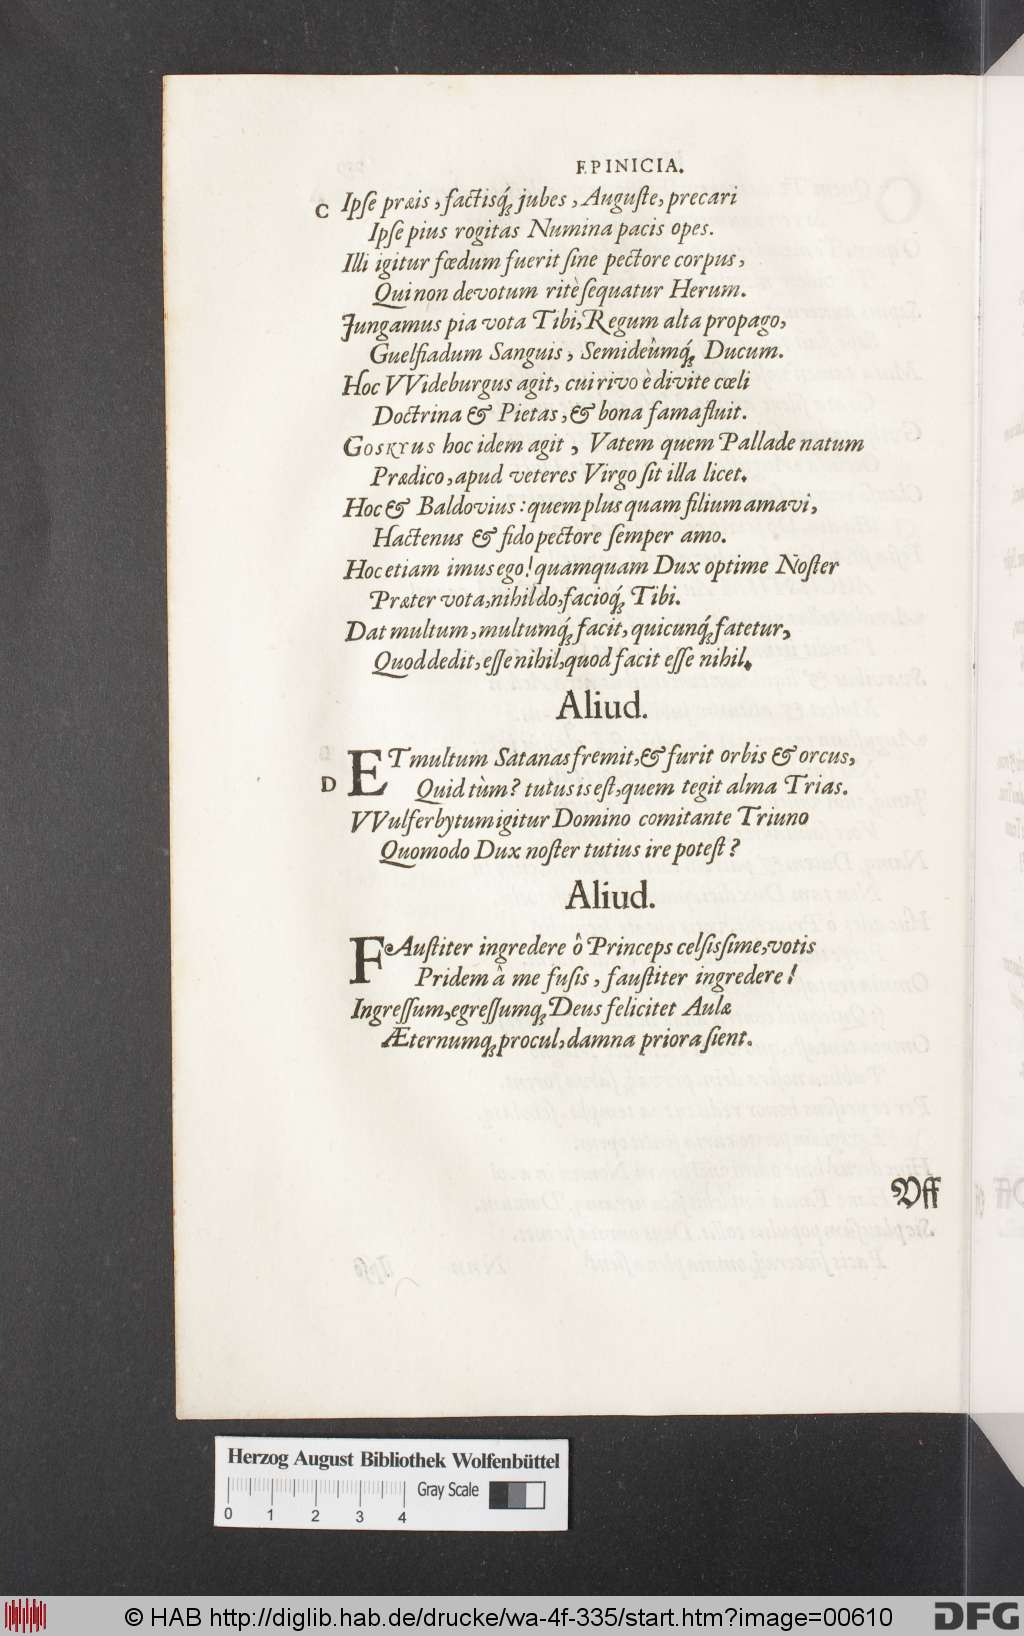 EPINICIA.
C Ipſe præis, factisq́; jubes, Auguſte, precari
Ipſe pius rogitas Numina pacis opes.
Illi igitur fœdum fuerit ſine pectore corpus,
Qui non devotum ritè ſequatur Herum.
Jungamus pia vota Tibi, Regum alta propago,
Guelfiadum Sanguis, Semideûmq́; Ducum.
Hoc VVideburgus agit, cui rivo è divite cœli
Doctrina & Pietas, & bona fama fluit.
GOSKYUS hoc idem agit, Vatem quem Pallade natum
Prædico, apud veteres Virgo ſit illa licet.
Hoc & Baldovius: quem plus quam filium amavi,
Hactenus & fido pectore ſemper amo.
Hoc etiam imus ego! quamquam Dux optime Noſter
Præter vota, nihil do, facioq́; Tibi.
Dat multum, multumq́; facit, quicunq́; fatetur,
Quod dedit, eſſe nihil, quod facit eſſe nihil.
Aliud.
ET multum Satanas fremit, & furit orbis & orcus,
D Quid tùm? tutus is eſt, quem tegit alma Trias.
VVulferbytum igitur Domino comitante Triuno
Quomodo Dux noſter tutius ire poteſt?
Aliud.
FAuſtiter ingredere ô Princeps celſisſime, votis
Pridem â me fuſis, fauſtiter ingredere!
Ingreſſum, egreſſumq; Deus felicitet Aulæ
Æternumq; procul, damna priora ſient.
Vff
Herzog August Bibliothek Wolfenbüttel
Gray Scale
0 1 2 3 4
© HAB http://diglib.hab.de/drucke/wa-4f-335/start.htm?image=00610
DFG